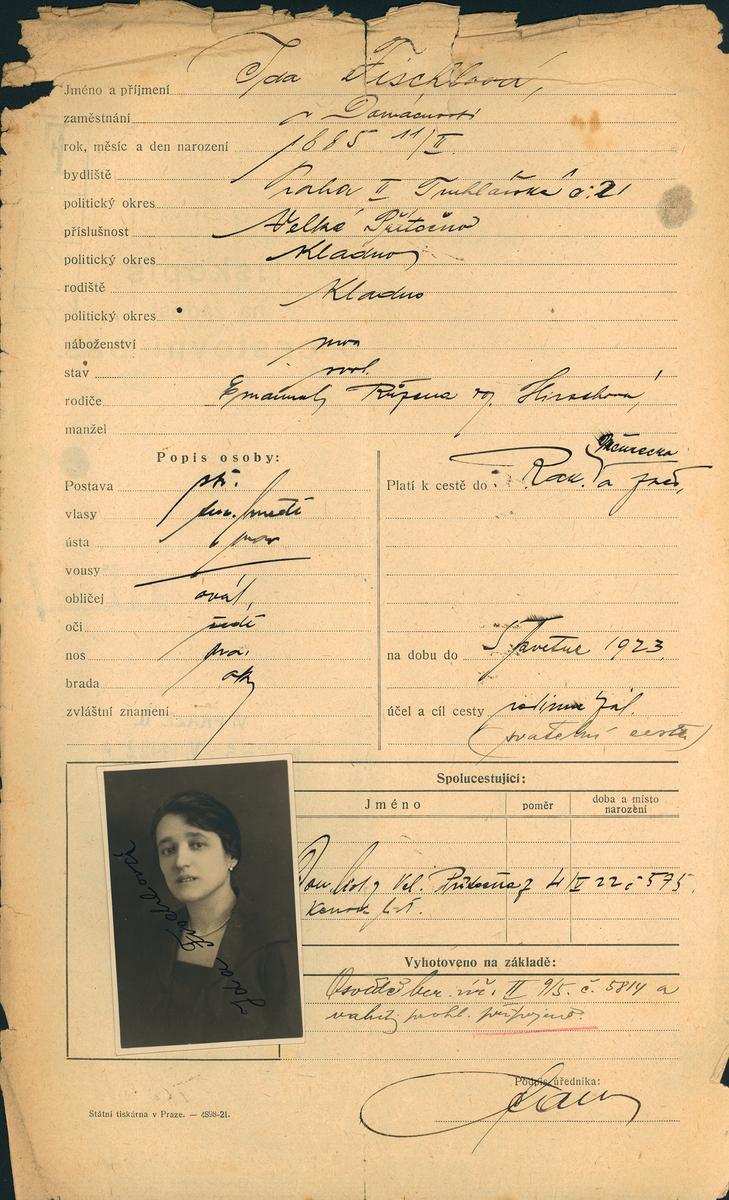 Jméno a příjmení Ida Fischlová,
zaměstnání v Domácnosti
rok, měsíc a den narození 1885 11/II.
bydliště
politický okres Praha II Truhlářská č: 21
příslušnost Velké Přítočno
politický okres Kladno
rodiště Kladno
politický okres
náboženství mos
stav svob.
rodiče Emanuel, Růžena roz. Hirschová,
manžel
Popis osoby:
Postava stř.
vlasy tm. hnědé
ústa prav
vousy
obličej ovál,
oči šedé
nos pra.
brada obl
zvláštní znamení
Platí k cestě do: Rak. Německa a zpět,
na dobu do 5 květen 1923
účel a cíl cesty rodinné zál.
(svatební cesta)
Spolucestující:
Jméno poměr doba a místo narození
Dom. list z Vel. Přítočna z 4/V 22 č 575.
list.
Vyhotoveno na základě:
Osvědč ber. II 9/5. č. 5814 a
prohl. připojeno.
Podpis úředníka:
Ida Fischlová
Státní tiskárna v Praze. — 4898-21.